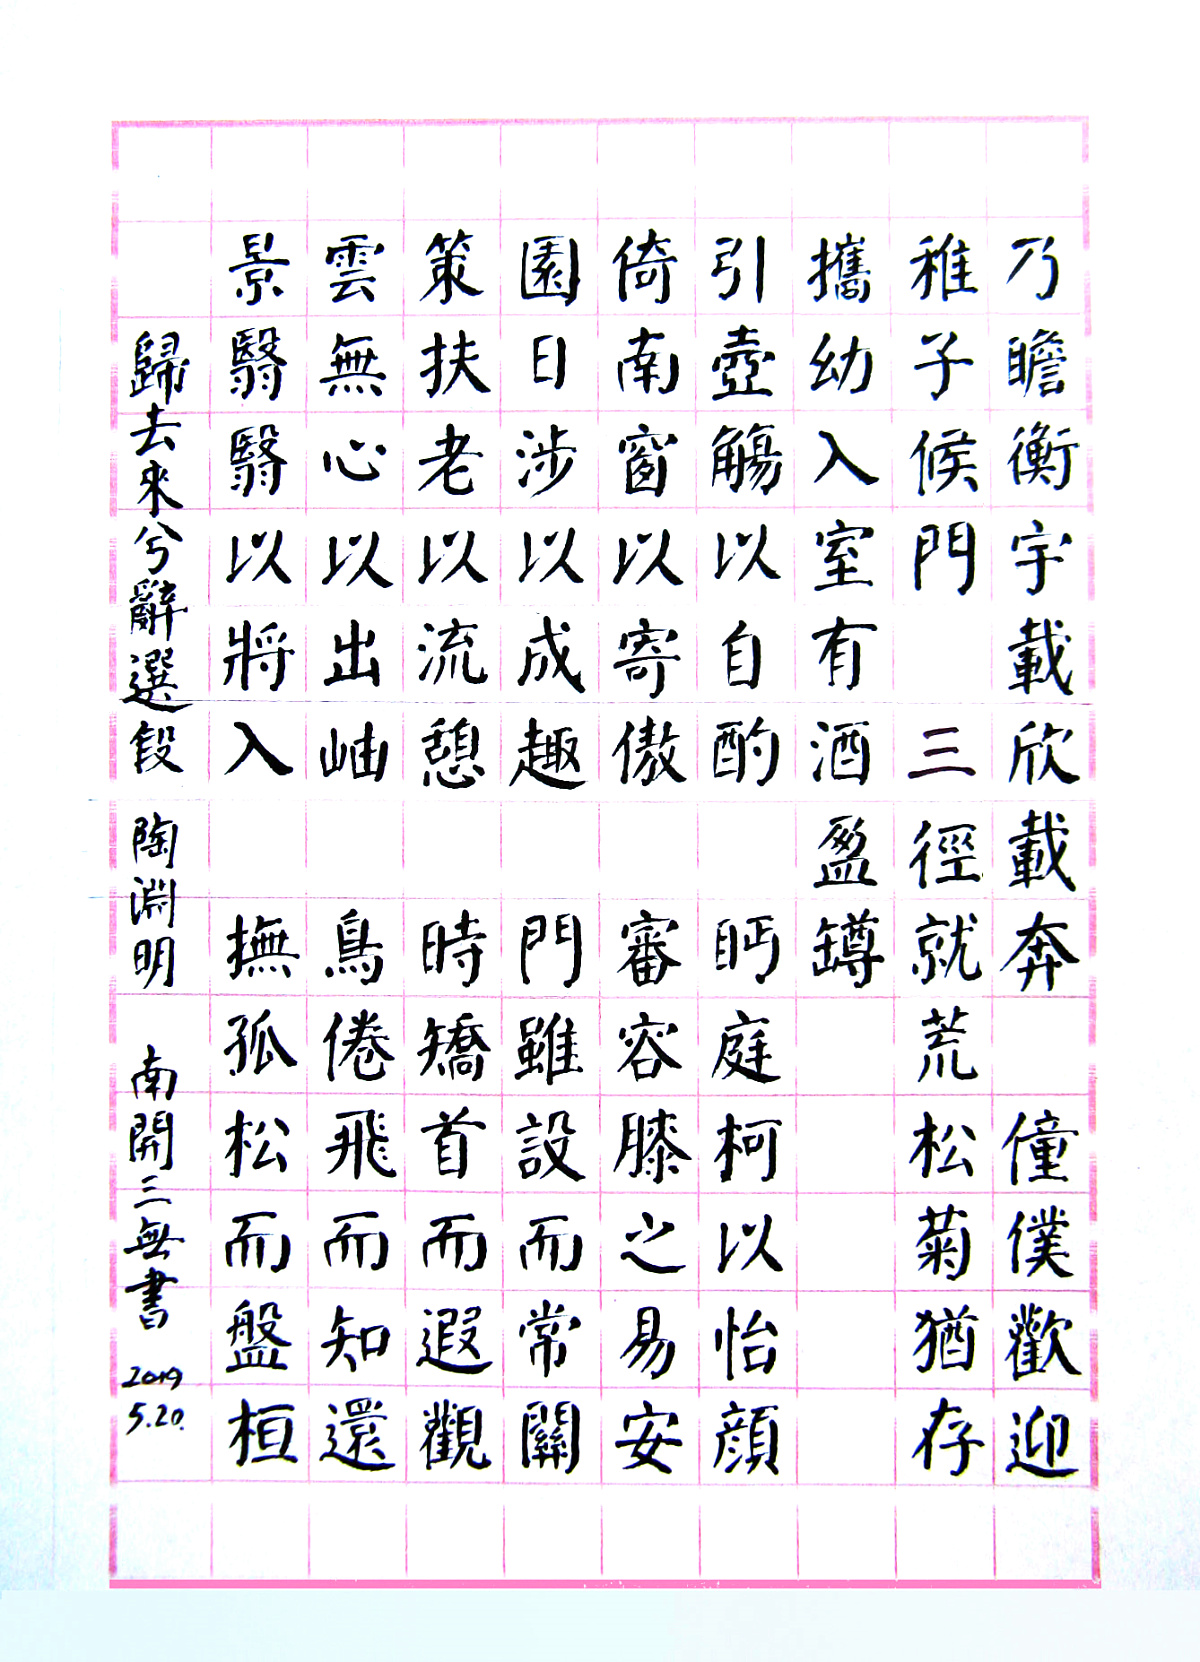 乃瞻衡宇載欣載奔 僮僕歡迎
稚子候門 三徑就荒松菊猶存
攜幼入室有酒盈罇
引壺觴以自酌 眄庭柯以怡顔
倚南窗以寄傲 審容膝之易安
園日涉以成趣 門雖設而常關
策扶老以流憩 時矯首而遐觀
雲無心以出岫 鳥倦飛而知還
景翳翳以將入 撫孤松而盤桓
歸去來兮辭選段 陶淵明 南開三無書 2019 5.20.